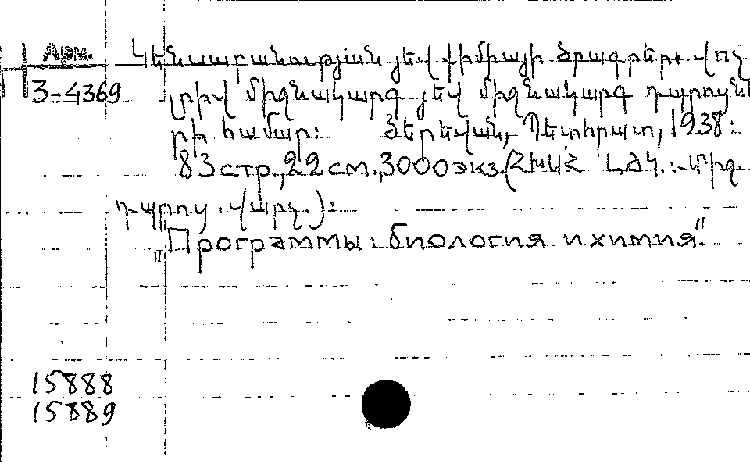 Арм. Կենսաբանության յեվ քիմիայի ծրագրեր վոչ
3-4369 լրիվ միջնակարգ յեվ միջնակարգ դպրոցնե
րի համար։ Յերեվան, Պետհրատ, 1938։
83 стр., 22 см., 3000 экз. (ՀԽՍՀ ԼԺԿ. Միջ.
դպրոց. վարչ.)։
"Программы: биология и химия".
15888
15889